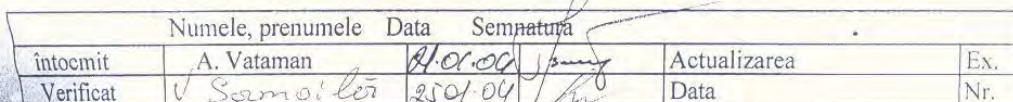 Numele, prenumele Data Semnatura
întocmit A. Vataman 01.04 Actualizarea Ex.
Verificat V Samoilă 25 01 04 Data Nr.